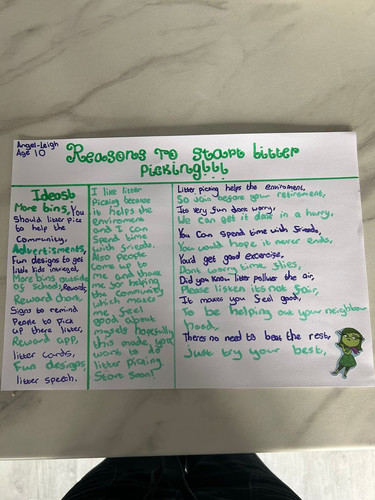 Angel-Leigh
Age 10
Reasons To Start Litter
Picking!!!
Ideas!
More bins, You
Should litter pick
to help the
Community,
Advertisments,
Fun designs to get
little kids involved,
More bins outside
of school, Rewards
Reward chart,
Signs to remind
People to Pick
up there litter,
Reward app,
litter cards,
Fun designs,
litter speech.
I like litter
Picking because
it helps the
enviroment
and I can
Spend time
with friends.
Also people
come up to
me and thank
me for helping
the community
which makes
me feel
good about
myself hopefully
this made you
want to do
litter picking.
Start Soon!
Litter picking helps the enviroment,
So Join before your retirement,
Its very fun dont worry,
We can get it done in a hurry,
You can spend time with friends,
You would hope it never ends,
You'd get good excercise,
Dont worry time flies,
Did you know litter pollutes the air,
Please listen its not fair,
It makes you feel good,
To be helping out your neighbour
hood,
Theres no need to beat the rest,
Just try your best,